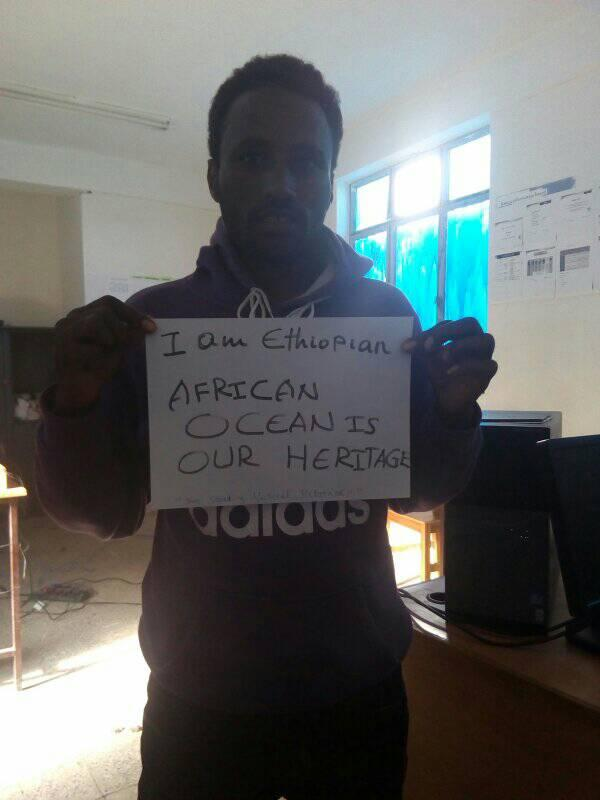 I am Ethiopian
AFRICAN
OCEAN IS
OUR HERITAGE
adidas